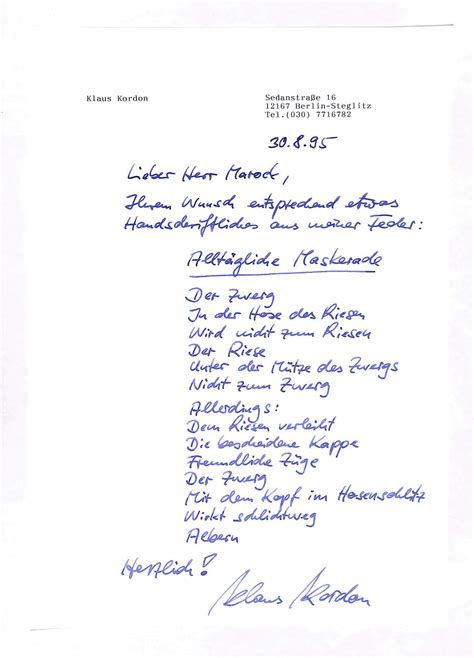 Klaus Kordon
Sedanstraße 16
12167 Berlin-Steglitz
Tel.(030) 7716782
30.8.95
Lieber Herr Marock,
Ihrem Wunsch entsprechend etwas
Handschriftliches aus meiner Feder:
Alltägliche Maskerade
Der Zwerg
In der Hose des Riesen
Wird nicht zum Riesen
Der Riese
Unter der Mütze des Zwergs
Nicht zum Zwerg
Allerdings:
Dem Riesen verleiht
Die bescheidene Kappe
Freundliche Züge
Der Zwerg
Mit dem Kopf im Hosenschlitz
Wirkt schlichtweg
Albern
Herzlich!
Klaus Kordon